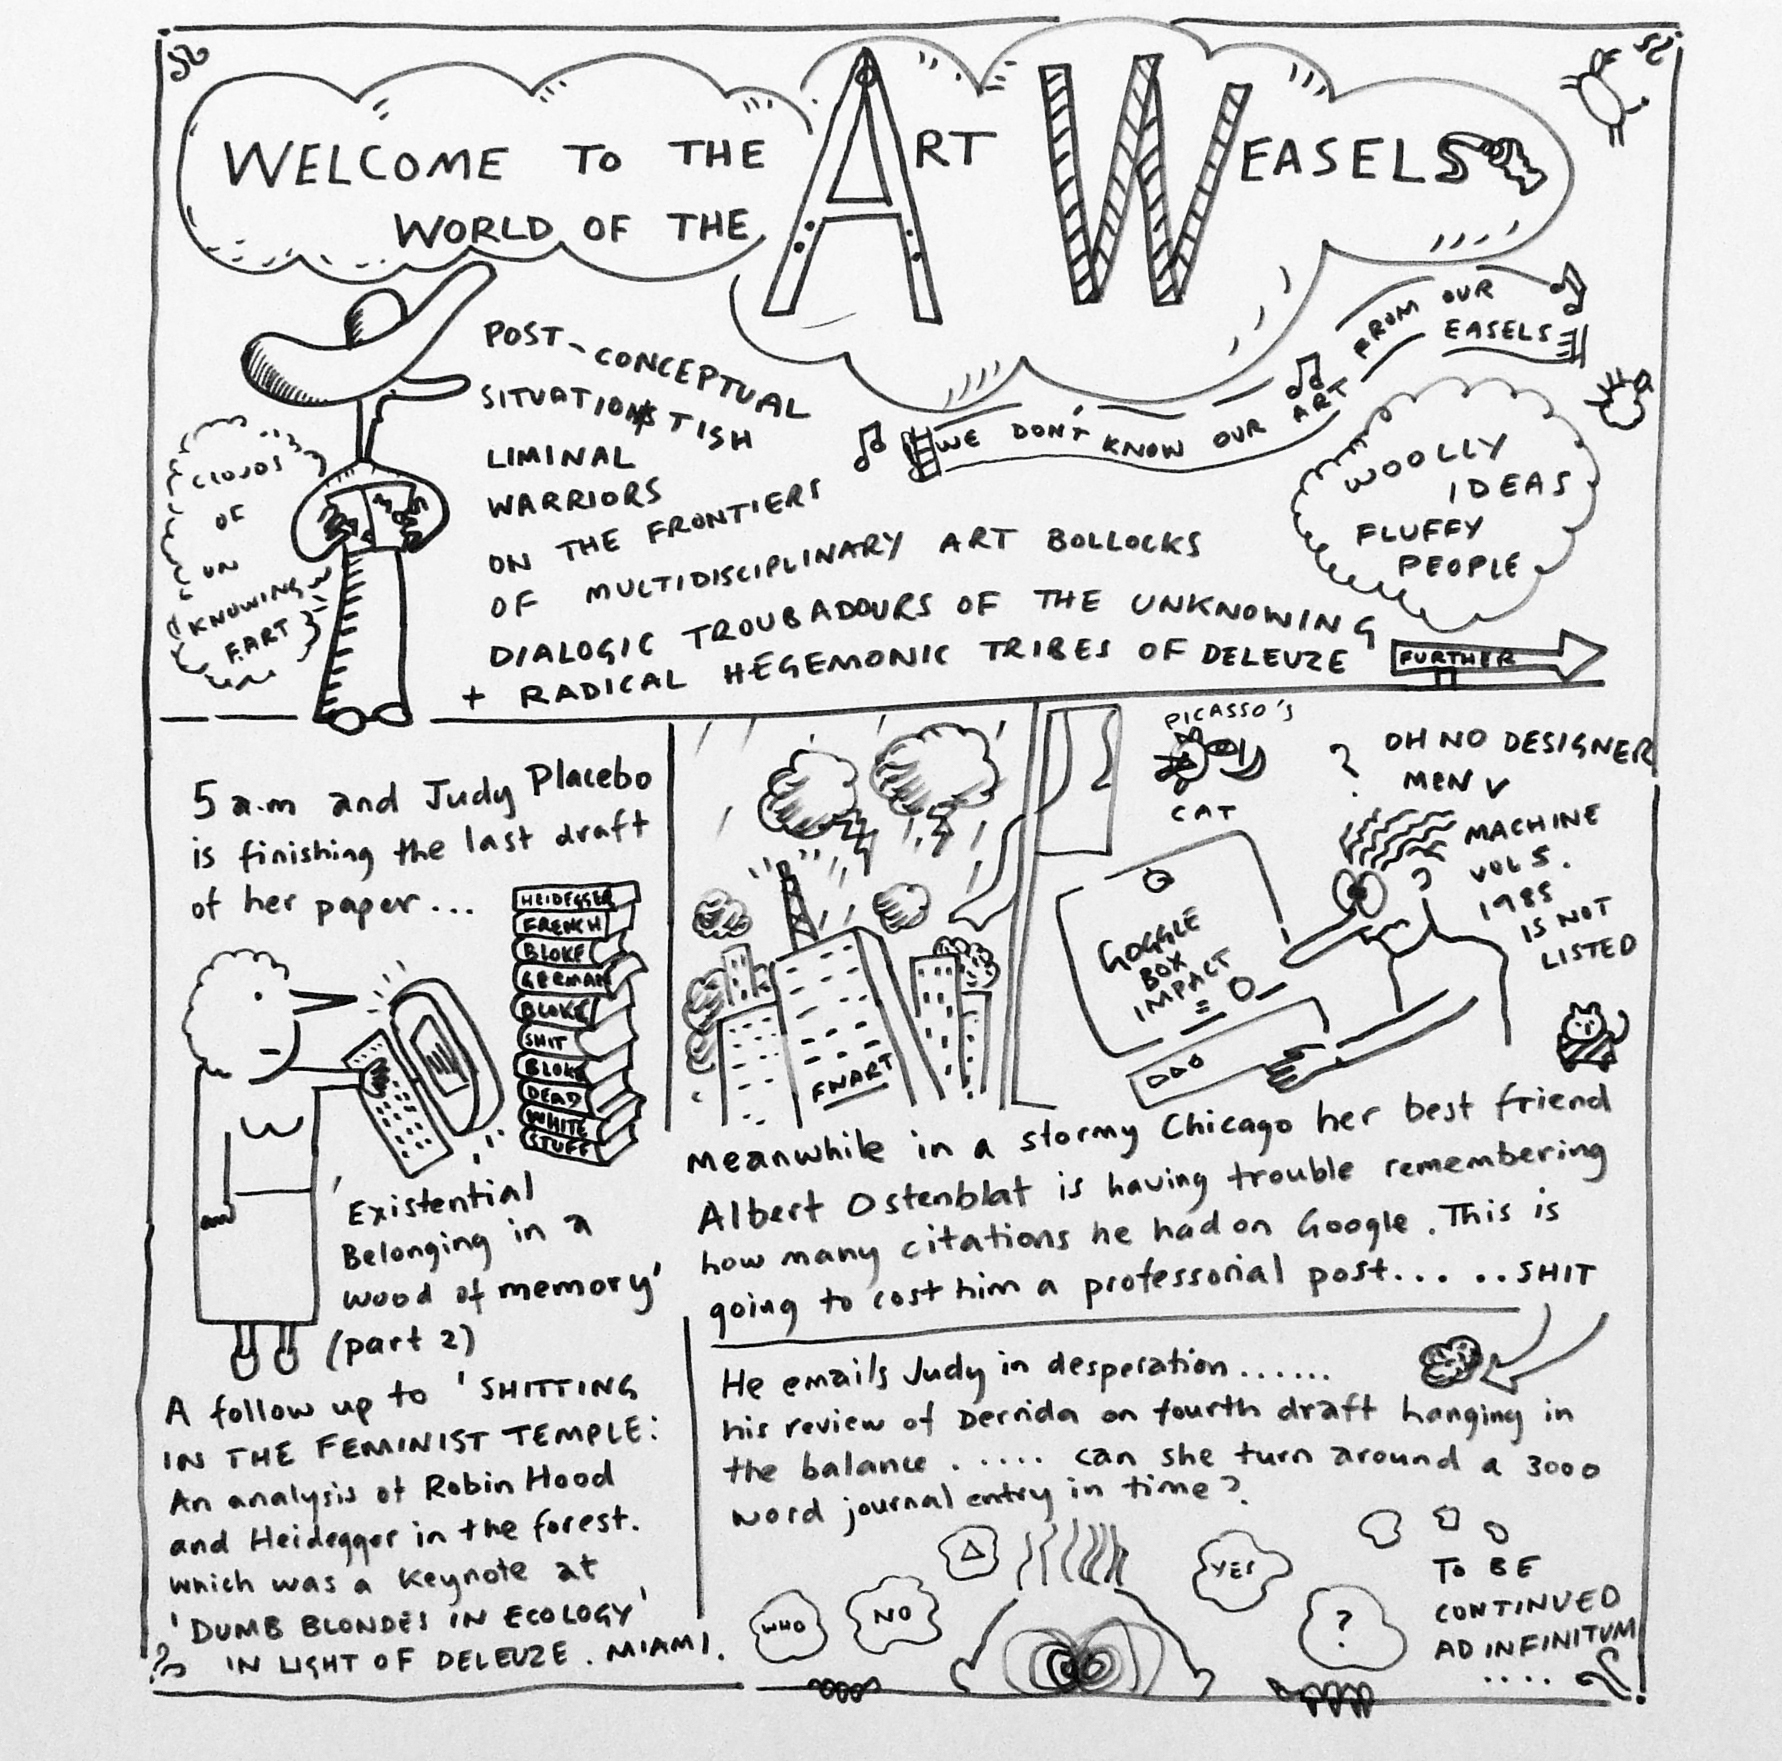 WELCOME TO THE
WORLD OF THE
ART WEASELS
POST-CONCEPTUAL
SITUATIONISTISH
LIMINAL
WARRIORS
ON THE FRONTIERS
OF MULTIDISCIPLINARY ART BOLLOCKS
DIALOGIC TROUBADOURS OF THE UNKNOWING
+ RADICAL HEGEMONIC TRIBES OF DELEUZE
CLOUDS
OF
UN
KNOWING
FART
WE DON'T KNOW OUR ART FROM OUR
EASELS
WOOLLY
IDEAS
FLUFFY
PEOPLE
FURTHER
5 a.m and Judy Placebo
is finishing the last draft
of her paper...
HEIDEGGER
FRENCH
BLOKE
GERMAN
BLOKE
SHIT
BLOKE
DEAD
WHITE
STUFF
'Existential
Belonging in a
wood of memory'
(part 2)
A follow up to 'SHITTING
IN THE FEMINIST TEMPLE:
An analysis of Robin Hood
and Heidegger in the forest.
which was a keynote at
'DUMB BLONDES IN ECOLOGY'
IN LIGHT OF DELEUZE. MIAMI.
FNART
PICASSO'S
CAT
?
OH NO DESIGNER
MEN V
MACHINE
VOL 5.
1985
IS NOT
LISTED
GOGGLE
BOX
IMPACT
= 0 -
Meanwhile in a stormy Chicago her best friend
Albert Ostenblat is having trouble remembering
how many citations he had on Google. This is
going to cost him a professorial post... ..SHIT
He emails Judy in desperation......
his review of Derrida on fourth draft hanging in
the balance..... can she turn around a 3000
word journal entry in time?
WHO
NO
YES
?
TO BE
CONTINUED
AD INFINITUM
....